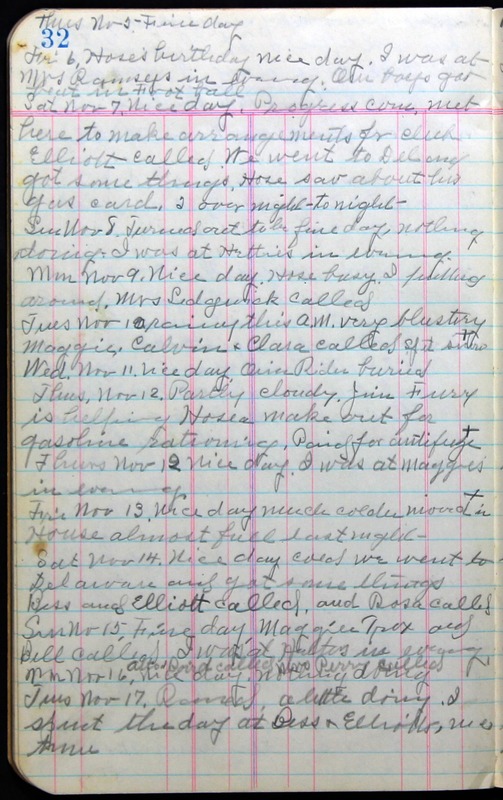 Thurs Nov 5 - Fine day
32
Fri 6, Hose's birthday nice day. I was at
Mrs Ramseys in evening. Our boys got
beat in Foot Ball
Sat Nov 7, Nice day, Progress com, met
here to make arrangements for club
Elliott called We went to Delaware
got some things, Hose saw about his
gas card. 2 over night to night -
Sun Nov 8. Turned out to be fine day, nothing
doing. I was at Hatties in evening.
Mon Nov 9. Nice day. Hose busy. I putting
around. Mrs Sedgwick called
Tues Nov 10 raining this A.M. very blustery
Maggie, Calvin & Clara called
Wed. Nov 11. nice day Rider buried
Thus, Nov 12. Partly cloudy. Jim Fury
is helping Hosea make out for
gasoline rationing, Paid for antifreeze
Thurs Nov 12 Nice day. I was at Maggies
in evening
Fri Nov 13, Nice day much colder moved in
House almost full last night -
Sat Nov 14. Nice day cold we went to
Delaware and got some things
Bess and Elliott called, and Rosa called
Sun Nov 15, Fine day, Maggie Trox and
Bell called, I was at Hatties in evening
called Mrs Perry called
Mon Nov 16, Nice day. nothing doing
Tues Nov 17, Rained, a little doing. I
spent the day at Bess & Elliotts,